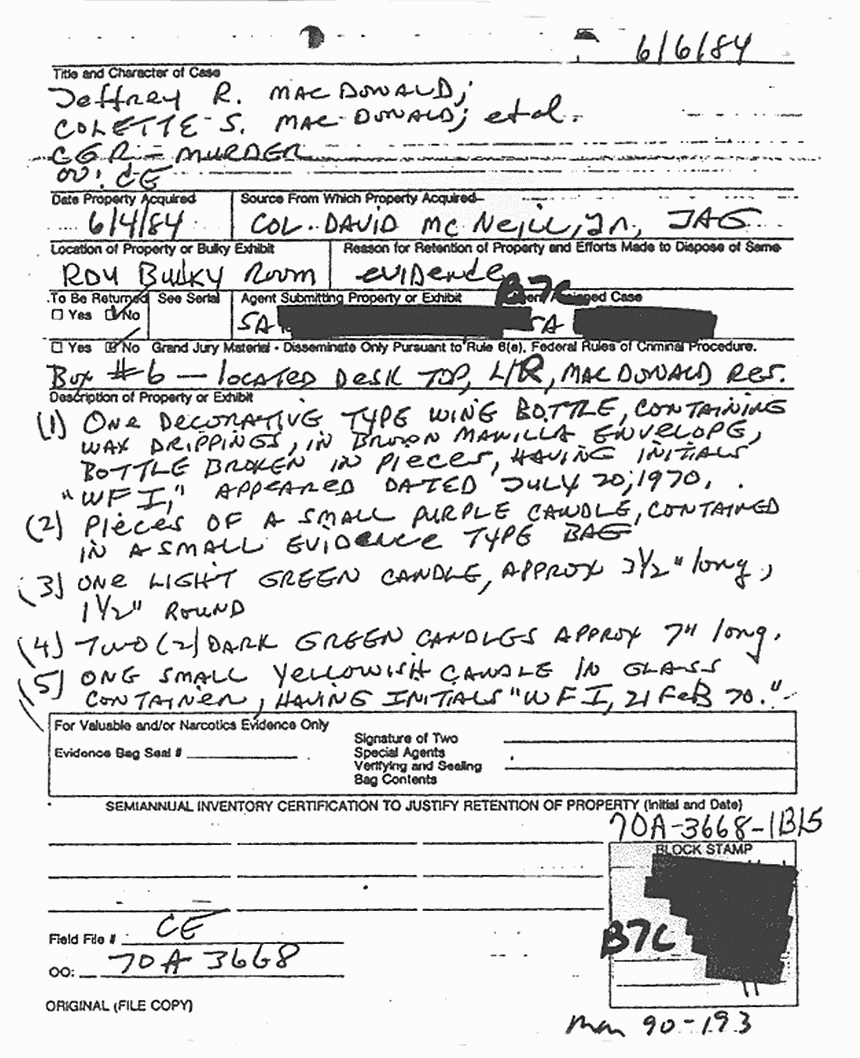 6/6/84
Title and Character of Case
Jeffrey R. MAC DONALD;
COLETTE S. MAC DONALD; et al.
CGR - MURDER
OO: CE
Date Property Acquired Source From Which Property Acquired
6/4/84 COL. DAVID McNeill, Jr., JAG
Location of Property or Bulky Exhibit Reason for Retention of Property and Efforts Made to Dispose of Same
RDU Bulky Room evidence
B7C
To Be Returned See Serial Agent Submitting Property or Exhibit Agent Assigned Case
Yes No SA SA
Yes No Grand Jury Material - Disseminate Only Pursuant to Rule 6(e), Federal Rules of Criminal Procedure.
Box #6 — located Desk TOP, L/R, MAC DONALD Res.
Description of Property or Exhibit
(1) ONe DECORATIVE TYPE WING BOTTLE, CONTAINING
WAX DRIPPINGS, IN BROWN MANILLA ENVELOPE,
BOTTLE BROKEN IN PIECES, HAVING INITIALS
"WFI," APPEARED DATED JULY 20, 1970.
(2) PIECES OF A SMALL PURPLE CANDLE, CONTAINED
IN A SMALL EVIDENCE TYPE BAG
(3) ONE LIGHT GREEN CANDLE, APPROX 3½" long,
1½" ROUND
(4) TWO (2) DARK GREEN CANDLES APPROX 7" long.
(5) ONE SMALL YELLOWISH CANDLE IN GLASS
CONTAINER, HAVING INITIALS "WFI, 21 FeB 70."
For Valuable and/or Narcotics Evidence Only
Evidence Bag Seal #
Signature of Two
Special Agents
Verifying and Sealing
Bag Contents
SEMIANNUAL INVENTORY CERTIFICATION TO JUSTIFY RETENTION OF PROPERTY (Initial and Date)
70A-3668-1B15
BLOCK STAMP
B7C
Field File # CE
OO: 70A 3668
ORIGINAL (FILE COPY)
90-193